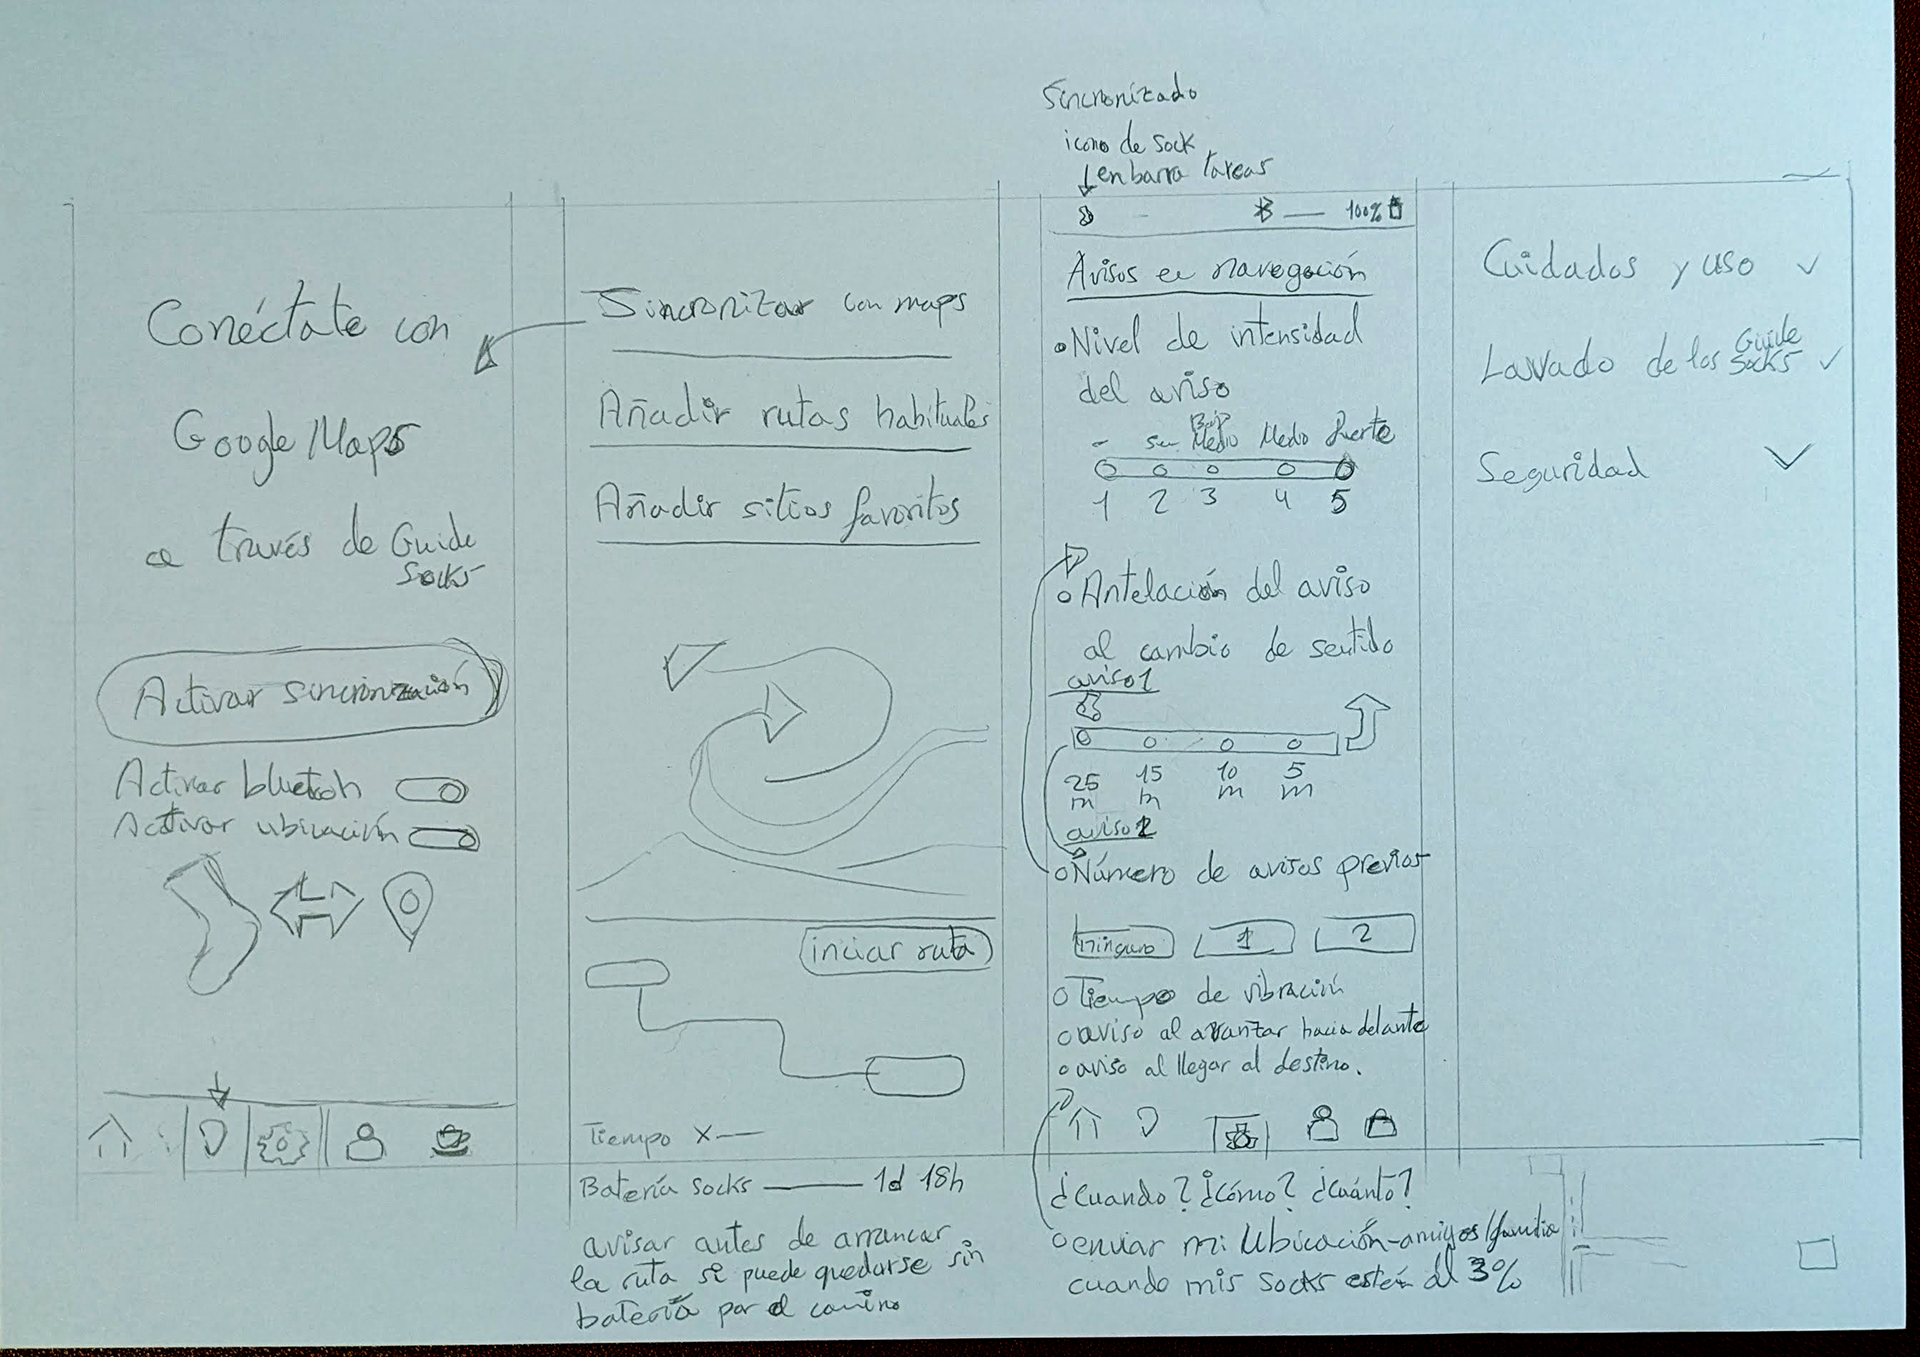 Conéctate con
Google Maps
a través de Guide
Socks
Activar sincronización
Activar bluetooh
Activar ubicación
Sincronizar con maps
Añadir rutas habituales
Añadir sitios favoritos
inciar ruta
Tiempo X
Batería socks 1d 18h
avisar antes de arrancar
la ruta si puede quedarse sin
batería por el camino
Sincronizado
icono de Sock
en barra tareas
100%
Avisos en navegación
Nivel de intensidad
del aviso
Bajo
- Medio Medio fuerte
1 2 3 4 5
Antelación del aviso
al cambio de sentido
aviso 1
25 15 10 5
m m m m
aviso 2
Número de avisos previos
ninguno 1 2
Tiempo de vibración
aviso al avanzar hacia delante
aviso al llegar al destino.
¿Cuando? ¿Cómo? ¿Cuánto?
enviar mi Ubicación-amigos/familia
cuando mis socks estén al 3%
Cuidados y uso
Lavado de los Guide
Socks
Seguridad